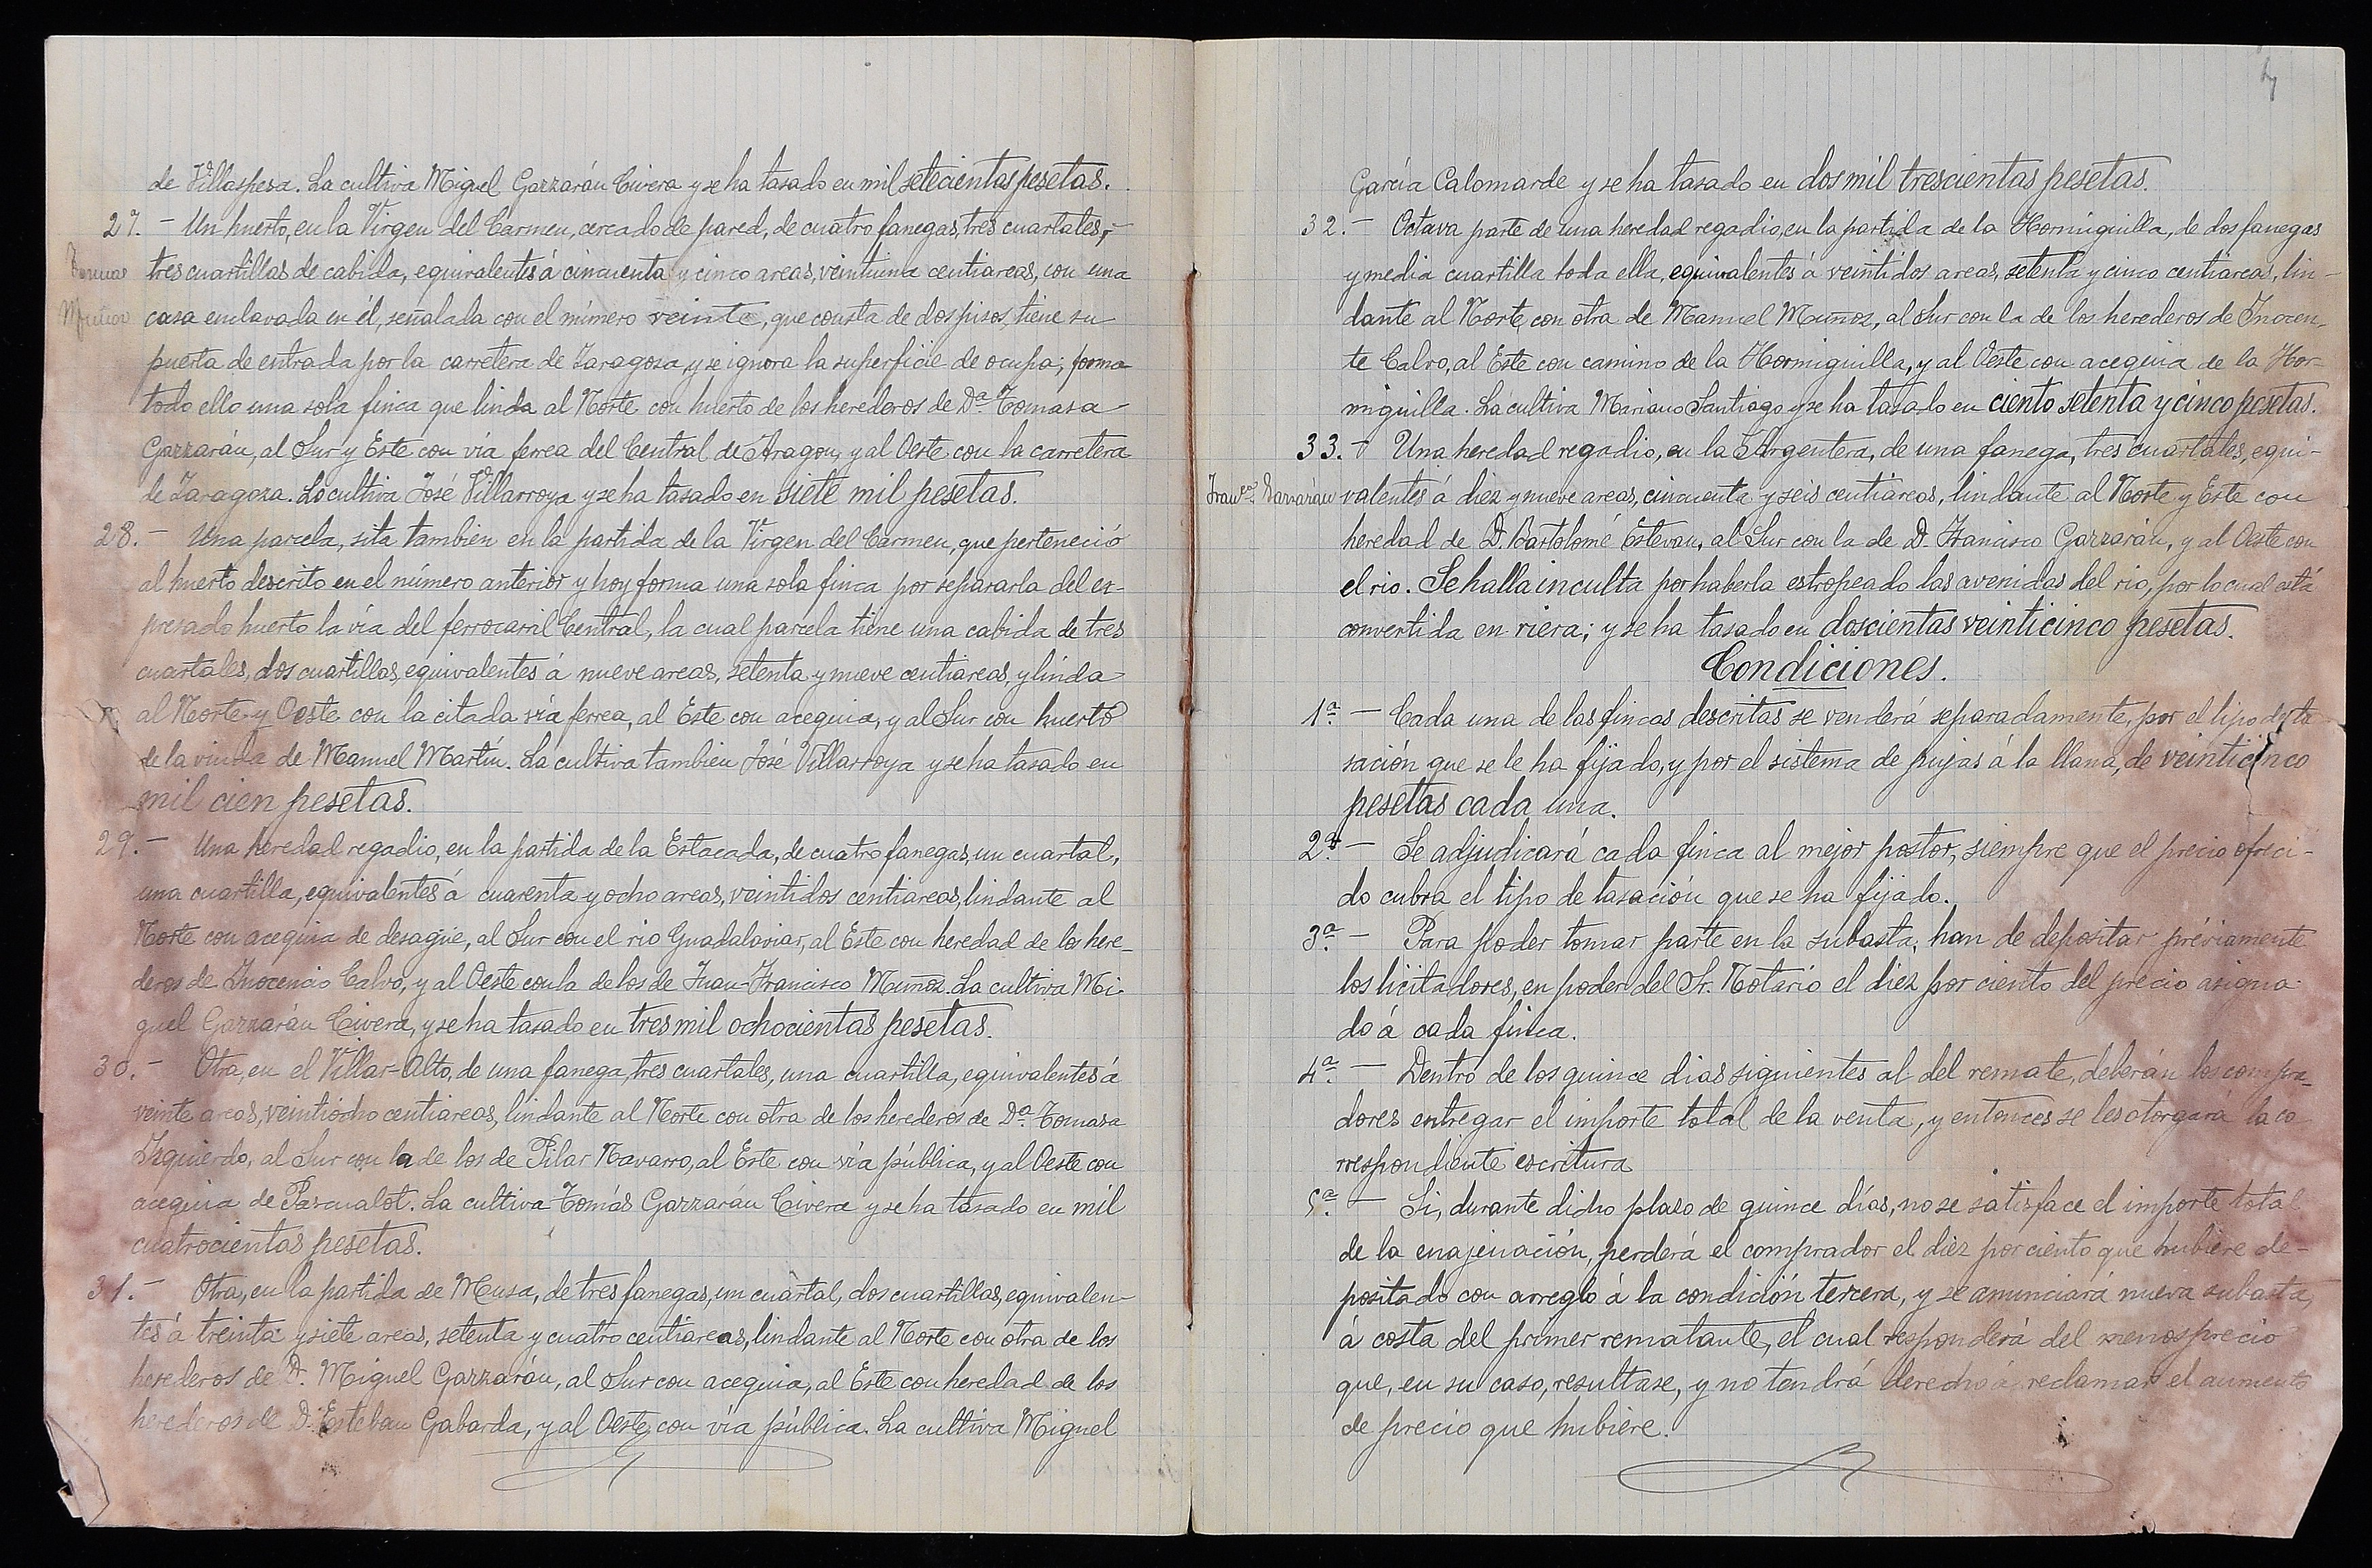 de Villaspesa. La cultiva Miguel Garzarán Civera y se ha tasado en mil setecientas pesetas.
27. – Un huerto, en la Virgen del Carmen, cercado de pared, de cuatro fanegas, tres cuartales,
tres cuartillas de cabida, equivalentes á cincuenta y cinco areas, veintiuna centiareas, con una
Muñoz
casa enclavada en él, señalada con el número veinte, que consta de dos pisos, tiene su
puerta de entrada por la carretera de Zaragoza, y se ignora la superficie de ocupa; forma
todo ello una sola finca que linda al Norte con huerto de los herederos de Dª. Tomasa
Garzarán, al Sur y Este con vía ferrea del Central de Aragon, y al Oeste con la carretera
de Zaragoza. Lo cultiva José Villarroya y se ha tasado en siete mil pesetas.
28. – Una parcela, sita tambien en la partida de la Virgen del Carmen, que perteneció
al huerto descrito en el número anterior y hoy forma una sola finca por separarla del ex-
presado huerto la vía del ferrocarril Central, la cual parcela tiene una cabida de tres
cuartales, dos cuartillas, equivalentes á nueve areas, setenta y nueve centiareas, y linda
al Norte y Oeste con la citada vía ferrea, al Este con acequia, y al Sur con huerto
de la viuda de Manuel Martín. La cultiva tambien José Villarroya y se ha tasado en
mil cien pesetas.
29. – Una heredad regadio, en la partida de la Estacada, de cuatro fanegas, un cuartal,
una cuartilla, equivalentes á cuarenta y ocho areas, veintidos centiareas, lindante al
Norte con acequia de desagüe, al Sur con el rio Guadalaviar, al Este con heredad de los here-
deros de Inocencio Calvo, y al Oeste con la de los de Juan-Francisco Muñoz. La cultiva Mi-
guel Garzarán Civera, y se ha tasado en tres mil ochocientas pesetas.
30. – Otra, en el Villar-Alto, de una fanega, tres cuartales, una cuartilla, equivalentes á
veinte areas, veintiocho centiareas, lindante al Norte con otra de los herederos de Dª. Tomasa
Izquierdo, al Sur con la de los de Pilar Navarro, al Este con vía pública, y al Oeste con
acequia de Pascualot. La cultiva Tomás Garzarán Civera y se ha tasado en mil
cuatrocientas pesetas.
31. – Otra, en la partida de Mensa, de tres fanegas, un cuartal, dos cuartillas, equivalen-
tes á treinta y siete areas, setenta y cuatro centiareas, lindante al Norte con otra de los
herederos de D. Miguel Garzarán, al Sur con acequia, al Este con heredad de los
herederos de D. Esteban Gabarda, y al Oeste, con vía pública. La cultiva Miguel
García Calomarde y se ha tasado en dos mil trescientas pesetas.
32. – Octava parte de una heredad regadio, en la partida de la Hormiguilla, de dos fanegas
y media cuartilla toda ella, equivalentes á veintidos areas, setenta y cinco centiareas, lin-
dante al Norte con otra de Manuel Muñoz, al Sur con la de los herederos de Inocen-
te Calvo, al Este con camino de la Hormiguilla, y al Oeste con acequia de la Hor-
miguilla. La cultiva Mariano Santiago y se ha tasado en ciento setenta y cinco pesetas.
33. – Una heredad regadio, en la Argentera, de una fanega, tres cuartales, equi-
valentes á diez y nueve areas, cincuenta y seis centiareas, lindante al Norte y Este con
heredad de D. Bartolomé Estevan, al Sur con la de D. Francisco Garzarán, y al Oeste con
el rio. Se halla inculta por haberla estropeado las avenidas del rio, por lo cual está
convertida en riera; y se ha tasado en doscientas veinticinco pesetas.
Condiciones.
1ª. – Cada una de las fincas descritas se venderá separadamente, por el tipo de ta
sación que se le ha fijado, y por el sistema de pujas á la llana, de veinticinco
pesetas cada una.
2ª. – Se adjudicará cada finca al mejor postor, siempre que el precio ofreci-
do cubra el tipo de tasación que se ha fijado.
3ª. – Para poder tomar parte en la subasta, han de depositar préviamente
los licitadores, en poder del Sr. Notario el diez por ciento del precio asigna-
do á cada finca.
4ª. – Dentro de los quince dias siguientes al del remate, deberán los compra-
dores entregar el importe total de la venta, y entonces se les otorgará la co
rrespondiente escritura
5ª. – Si, durante dicho plazo de quince días, no se satisface el importe total
de la enajenación, perderá el comprador el diez por ciento que hubiere de-
positado con arreglo á la condición tercera, y se anunciará nueva subasta,
á costa del primer rematante, el cual responderá del menosprecio
que, en su caso, resultase, y no tendrá derecho á reclamar el aumento
de precio que hubiere.